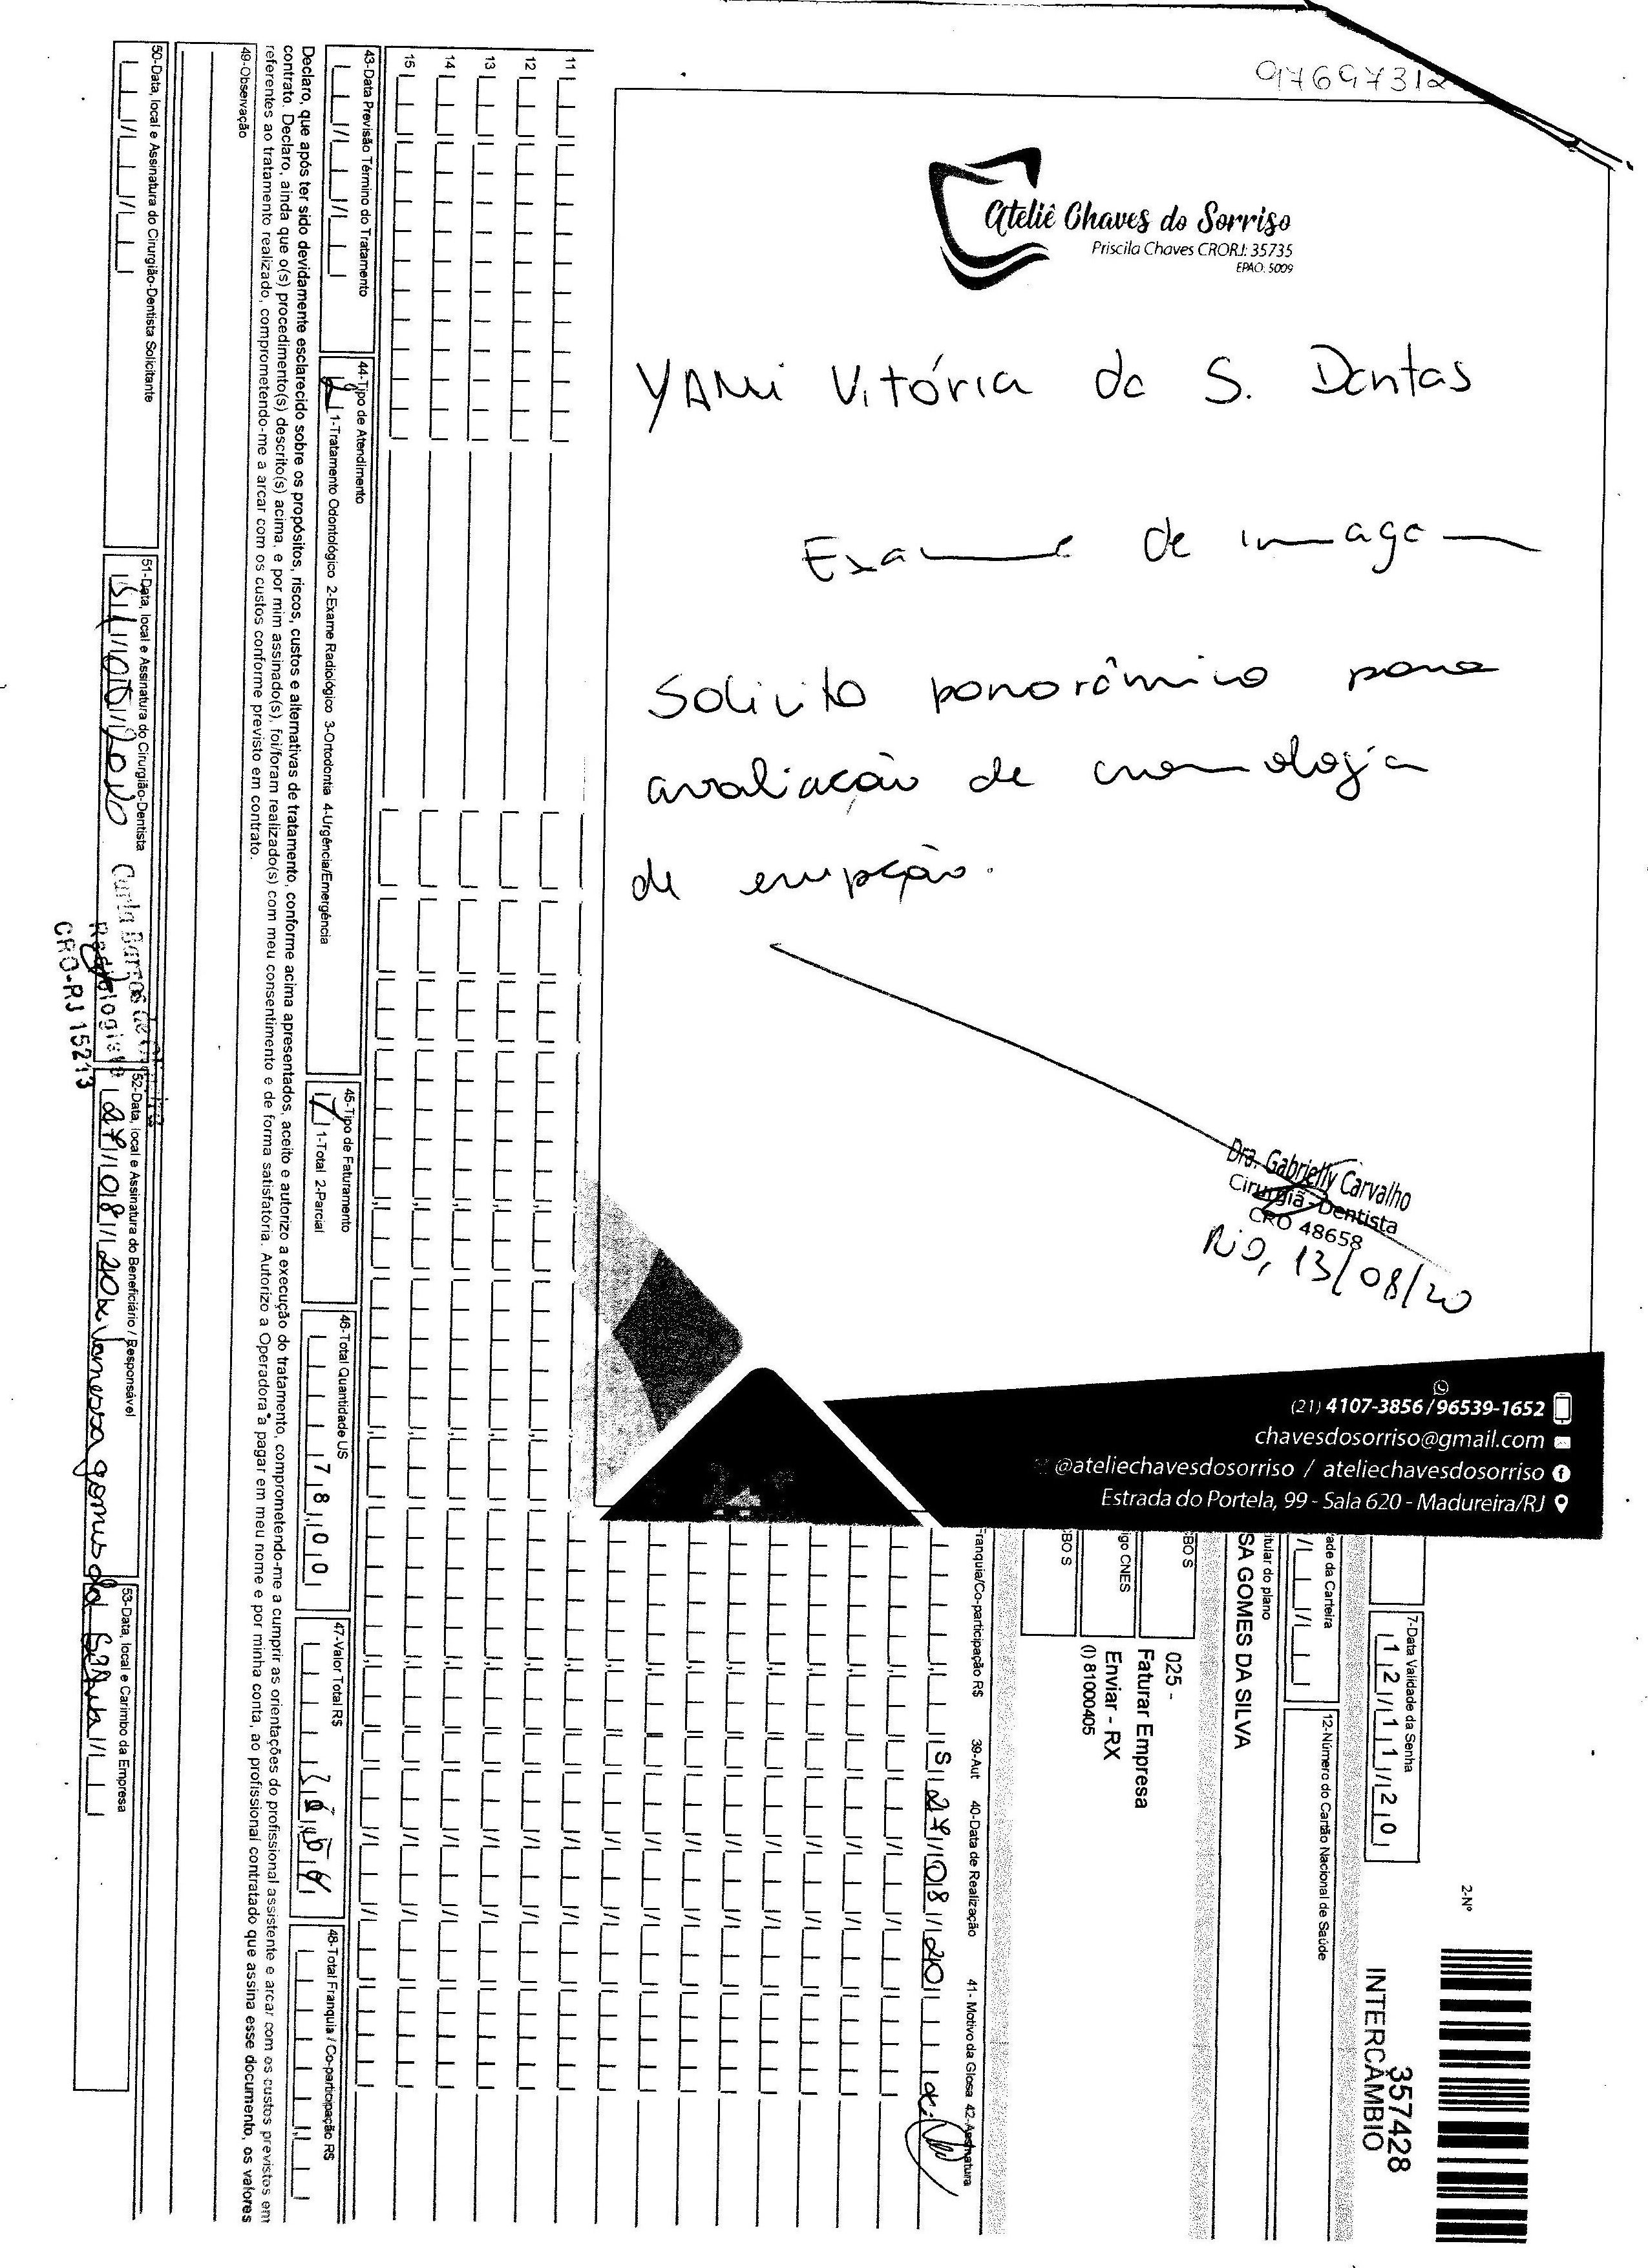 97697312
Ateliê Chaves do Sorriso
Priscila Chaves CRORJ: 35735
EPAO: 5009
YAMi Vitória da S. Dantas
Exame de imagem
Solicito panorâmica para
avaliação de cronologia
de erupção.
Dra. Gabrielly Carvalho
Cirurgiã-Dentista
CRO 48658
Rio, 13/08/20
(21) 4107-3856 / 96539-1652
chavesdosorriso@gmail.com
@ateliechavesdosorriso / ateliechavesdosorriso
Estrada do Portela, 99 - Sala 620 - Madureira/RJ
2-Nº
357428
INTERCÂMBIO
7-Data Validade da Senha
12/11/20
ade da Carteira
12-Número do Cartão Nacional de Saúde
itular do plano
SA GOMES DA SILVA
BO S
025 -
Faturar Empresa
igo CNES
Enviar - RX
(I) 81000405
BO S
ranquia/Co-participação R$ 39-Aut 40-Data de Realização 41- Motivo da Glosa 42-Assinatura
S 27/08/20
11
12
13
14
15
43-Data Previsão Término do Tratamento
44-Tipo de Atendimento
2 1-Tratamento Odontológico 2-Exame Radiológico 3-Ortodontia 4-Urgência/Emergência
45-Tipo de Faturamento
1 1-Total 2-Parcial
46-Total Quantidade US
78,00
47-Valor Total R$
48-Total Franquia / Co-participação R$
Declaro, que após ter sido devidamente esclarecido sobre os propósitos, riscos, custos e alternativas de tratamento, conforme acima apresentados, aceito e autorizo a execução do tratamento, comprometendo-me a cumprir as orientações do profissional assistente e arcar com os custos previstos em
contrato. Declaro, ainda que o(s) procedimento(s) descrito(s) acima, e por mim assinado(s), foi/foram realizado(s) com meu consentimento e de forma satisfatória. Autorizo a Operadora a pagar em meu nome e por minha conta, ao profissional contratado que assina esse documento, os valores
referentes ao tratamento realizado, comprometendo-me a arcar com os custos conforme previsto em contrato.
49-Observação
50-Data, local e Assinatura do Cirurgião-Dentista Solicitante
51-Data, local e Assinatura do Cirurgião-Dentista
Carla Barros de
Radiologista
CRO-RJ 15213
52-Data, local e Assinatura do Beneficiário / Responsável
27/08/20 Vanessa gomes da Silva
53-Data, local e Carimbo da Empresa